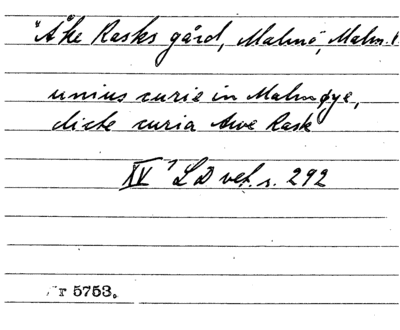 "Åke Rasks gård, Malmö", Malm.
unius curie in Malmøye,
dicte curia Awe Rask
XV¹ LD vet. s. 292
r 5753.